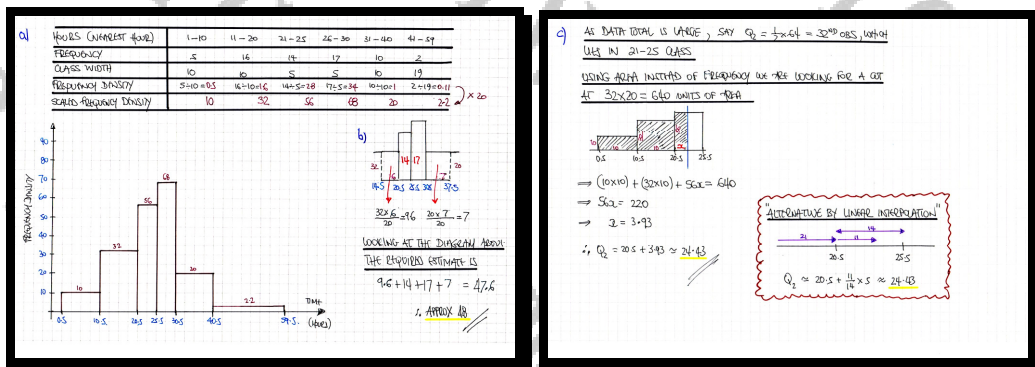 a)
HOURS (NEAREST HOUR) 1-10 11-20 21-25 26-30 31-40 41-59
FREQUENCY 5 16 14 17 10 2
CLASS WIDTH 10 10 5 5 10 19
FREQUENCY DENSITY 5÷10=0.5 16÷10=1.6 14÷5=2.8 17÷5=3.4 10÷10=1 2÷19=0.11
SCALED FREQUENCY DENSITY 10 32 56 68 20 2.2
× 20
FREQUENCY DENSITY
90
80
70
60
50
40
30
20
10
10
32
56
68
20
2.2
0.5 10.5 20.5 25.5 30.5 40.5 59.5
TIME
(HOURS)
b)
32 14 17 20
6 7
14.5 20.5 25.5 30.5 37.5
32×6/20=9.6 20×7/20=7
LOOKING AT THE DIAGRAM ABOVE
THE REQUIRED ESTIMATE IS
9.6+14+17+7 = 47.6
∴ APPROX 48
c)
AS DATA TOTAL IS LARGE, SAY Q2 = 1/2×64 = 32ND OBS, WHICH
LIES IN 21-25 CLASS
USING AREA INSTEAD OF FREQUENCY WE ARE LOOKING FOR A CUT
AT 32×20=640 UNITS OF AREA
10 10 32 10 56 x
0.5 10.5 20.5 25.5
⇒ (10×10) + (32×10) + 56x = 640
⇒ 56x = 220
⇒ x = 3.93
∴ Q2 = 20.5 + 3.93 ≈ 24.43
"ALTERNATIVE BY LINEAR INTERPOLATION"
14
21 11
20.5 25.5
Q2 ≈ 20.5 + 11/14 ×5 ≈ 24.43